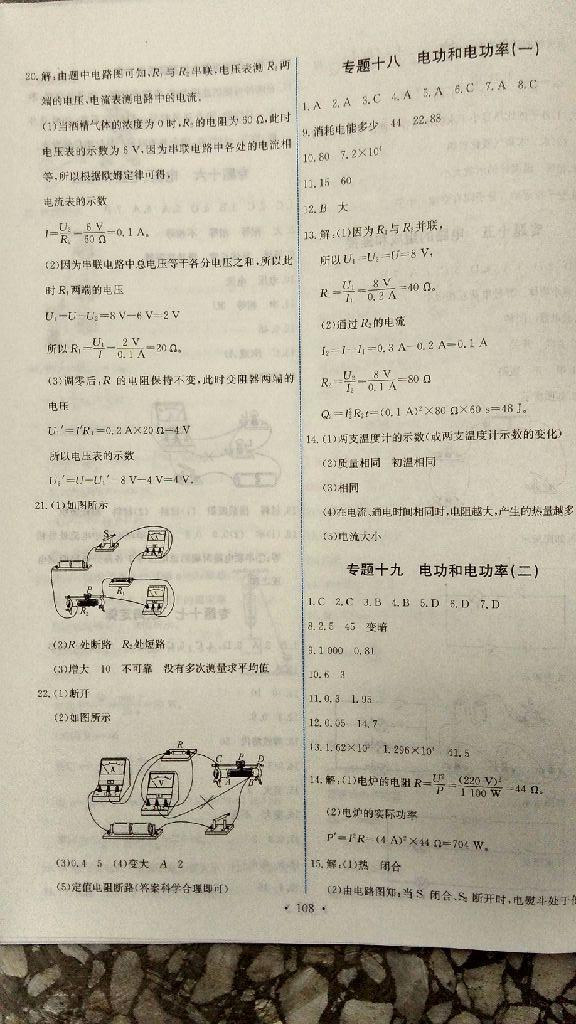 20.解:由题中电路图可知,R₁与R₂串联,电压表测R₂两
端的电压,电流表测电路中的电流.
(1)当酒精气体的浓度为0时,R₂的电阻为60 Ω,此时
电压表的示数为6 V,因为串联电路中各处的电流相
等,所以根据欧姆定律可得,
电流表的示数
I=U₂/R₂=6 V/60 Ω=0.1 A。
(2)因为串联电路中总电压等于各分电压之和,所以此
时R₁两端的电压
U₁=U-U₂=8 V-6 V=2 V
所以R₁=U₁/I=2 V/0.1 A=20 Ω。
(3)调零后,R₁的电阻保持不变,此时变阻器两端的
电压
U₁′=I′R₁=0.2 A×20 Ω=4 V
所以电压表的示数
U₂′=U-U₁′=8 V-4 V=4 V。
21.(1)如图所示
S
P
R₁
R₂
(2)R₁处断路 R₂处短路
(3)增大 10 不可靠 没有多次测量求平均值
22.(1)断开
(2)如图所示
R
A
V
C P D
A
(3)0.4 5 (4)变大 A 2
(5)定值电阻断路(答案科学合理即可)
专题十八 电功和电功率(一)
1.A 2.A 3.C 4.A 5.A 6.C 7.A 8.C
9.消耗电能多少 44 22.88
10.80 7.2×10⁴
11.15 60
12.B 大
13.解:(1)因为R₁与R₂并联,
所以U₁=U₂=U=8 V,
R₁=U₁/I₁=8 V/0.2 A=40 Ω。
(2)通过R₂的电流
I₂=I-I₁=0.3 A-0.2 A=0.1 A
R₂=U₂/I₂=8 V/0.1 A=80 Ω
Q₂=I₂²R₂t=(0.1 A)²×80 Ω×60 s=48 J。
14.(1)两支温度计的示数(或两支温度计示数的变化)
(2)质量相同 初温相同
(3)相同
(4)在电流、通电时间相同时,电阻越大,产生的热量越多
(5)电流大小
专题十九 电功和电功率(二)
1.C 2.C 3.B 4.B 5.D 6.D 7.D
8.2.5 45 变暗
9.1 000 0.81
10.6 3
11.0.3 1.95
12.0.05 14.7
13.1.62×10⁵ 1.296×10⁴ 61.5
14.解:(1)电炉的电阻R=U²/P=(220 V)²/1 100 W=44 Ω。
(2)电炉的实际功率
P′=I²R=(4 A)²×44 Ω=704 W。
15.解:(1)热 闭合
(2)由电路图知:当S₁闭合、S₂断开时,电熨斗处于
· 108 ·